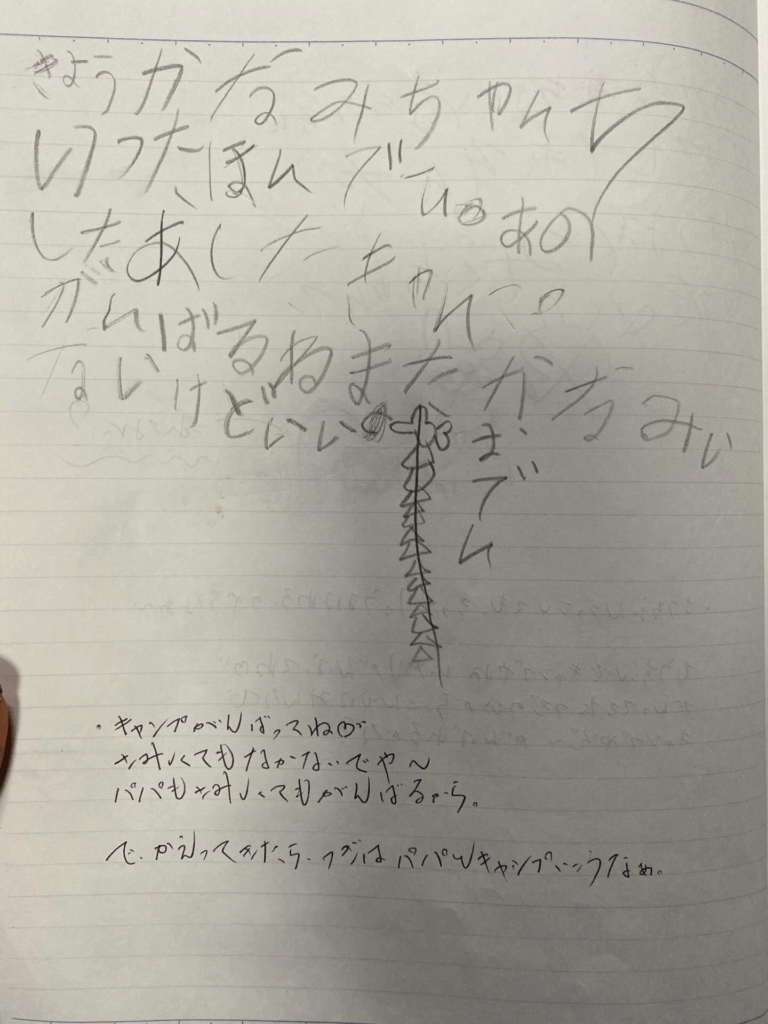 きょうかなみちゃんち
いった、ほんでい。あの
したあしたきゃんぷ。
がんばるねまたかなみい
ないけどいい
までん
・キャンプがんばってね
さみしくてもなかないでや〜
パパもさみしくてもがんばるから。
で、かえってきたら、つぎはパパとキャンプいこうなぁ。